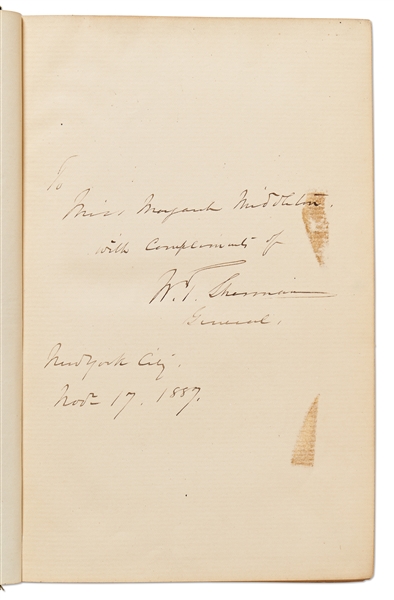 To
Miss Margaret Middleton.
with Compliments of
W. T. Sherman
General.
New York City.
Nov. 17. 1887.